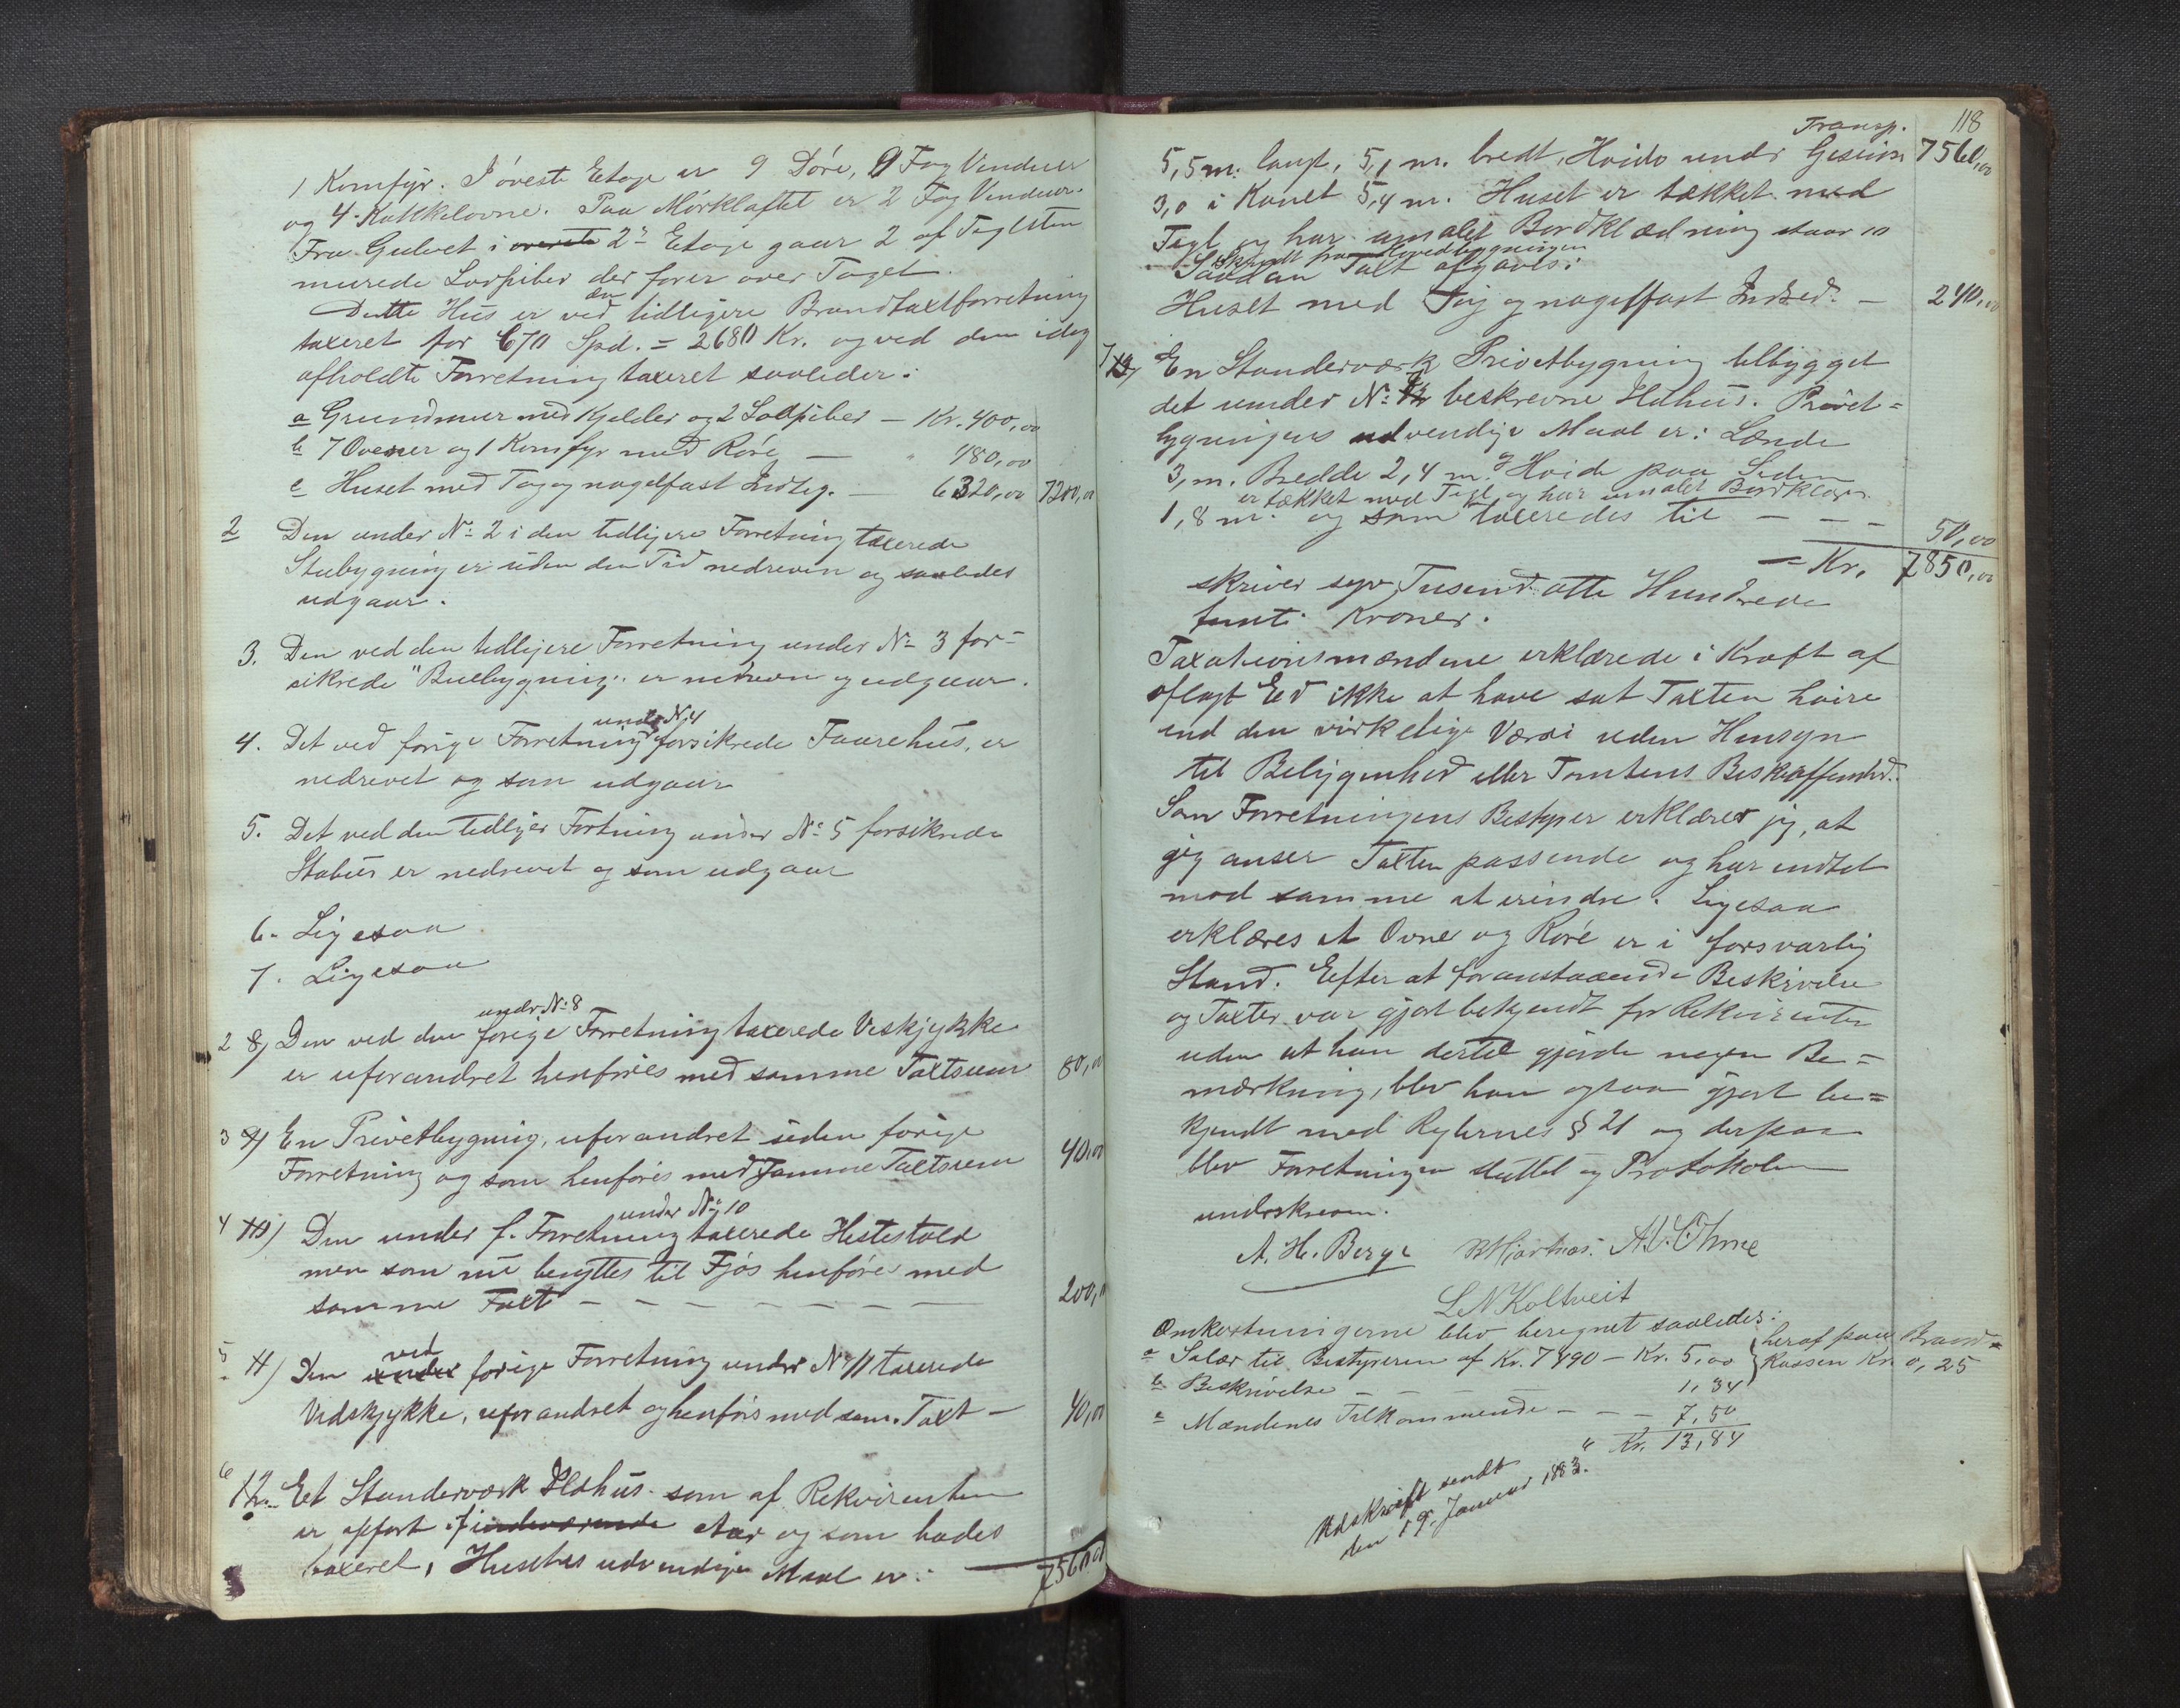 1 Komfyr. I øveste Etage er 9 Døre, 9 Fag Vinduer
og 4 Kakkelovne. Paa Mørkloftet er 2 Fag Vinduer.
Fra Gulvet i øverste 2den Etage gaar 2 af Teglsten
murede Lodpiber der fører over Taget.
Dette Hus er ved den tidligere Brandtaxtforretning
taxeret for 670 Spd. = 2680 Kr. og ved den idag
afholdte Forretning taxeret saaledes:
a Grundmur med Kjelder og 2 Lodpiber — Kr. 400,00
b 7 Ovner og 1 Komfyr med Rør — " 480,00
c Huset med Tag og nagelfast Indreg. — 6320,00 7200,00
2 Den under No 2 i den tidligere Forretning taxerede
Stubygning er uden den Tid nedreven og saaledes
udgaar.
3. Den ved den tidligere Forretning under No 3 for-
sikrede "Buebygning" er nedreven og udgaar.
4. Det ved forige Forretning under No 4 forsikrede Faarehus, er
nedrevet og som udgaar
5. Det ved den tidligere Fortning under No 5 forsikrede
Stabur er nedrevet og som udgaar
6. Ligesaa
7. Ligesaa
2 8) Den ved den forige Forretning under No 8 taxerede Veskjykke
er uforandret henføres med samme Taxtsum 80,00
3 9) En Privetbygning, uforandret siden forige
Forretning og som henføres med samme Taxtsum 40,00
4 10) Den under f. Forretning under No 10 taxerede Hestestald
men som nu benyttes til Fjøs henføres med
samme Taxt — — — — — — — 200,00
5 11) Den under ved forige Forretning under No 11 taxerede
Vedskjykke, uforandret og henføres med sam. Taxt — 40,00
6 12. Eet Standerværk Ildhus som af Rekvirenten
er opført i indeværende Aar og som bødes
taxeret, Husets udvendige Maal er: 7560,00
118
Transp.
5,5 m. langt, 5,1 m. bredt, Høide under Gesims 7560,00
3,0 i Rønet 5,4 m. Huset er tækket med
Tegl og har umalet Bordklædning staar 10
Skridt fra Hovedbygningen
Saadan Taxt afgaves:
Huset med Tag og nagelfast Indred. — 240,00
7 13) En Standerværk Privetbygning tilbygget
det under No 12 beskrevne Ildhus. Privet-
bygningens udvendige Maal er: Lænde
3, m. Bredde 2,4 m. Høide paa Siden
er tækket med Tegl og har umalet Bordklædn.
1,8 m. og som taxeredes til — — — 50,00
= Kr. 7850,00
skriver syv Tusind otte Hundrede
femti Kroner.
Taxationsmændene erklærede i Kraft af
aflagt Ed ikke at have sat Taxten høire
end den virkelige Værdi uden Hensyn
til Beligenhed eller Tomtens Beskaffenhed.
Som Forretningens Bestyrer erklærer jeg, at
jeg anser Taxten passende og har indtet
mod samme at erindre. Ligesaa
erklæres at Ovne og Røre er i forsvarlig
Stand. Eefter at foranstaaende Beskrivelse
og Taxter var gjort bekjendt for Rekvirenten
uden at han dertil gjorde nogen Be-
mærkning, blev han ogsaa gjort be-
kjendt med Reglernes § 21 og derpaa
blev Forretningen sluttet og Protokolen
underskreven.
A. H. Berge B Hjartnæs. A. O. Ohme
L N Koltveit
Omkostningerne blev beregnet saaledes:
a Salær til Bestyreren af Kr. 7490 — Kr. 5,00 } heraf paa Brand-
b Beskrivelse — — — 1,34 kassen Kr. 0,25
c Mændenes Tilkommende — — 7,50
" Kr. 13,84
Udskrift sendt
den 19. Januar 1883.